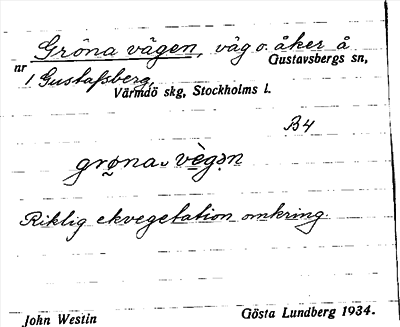 Gröna vägen, väg o. åker å
nr
1 Gustafsberg,
Gustavsbergs sn,
Värmdö skg, Stockholms l.
B4
grøna vὲgən
Riklig ekvegetation omkring.
John Westin
Gösta Lundberg 1934.